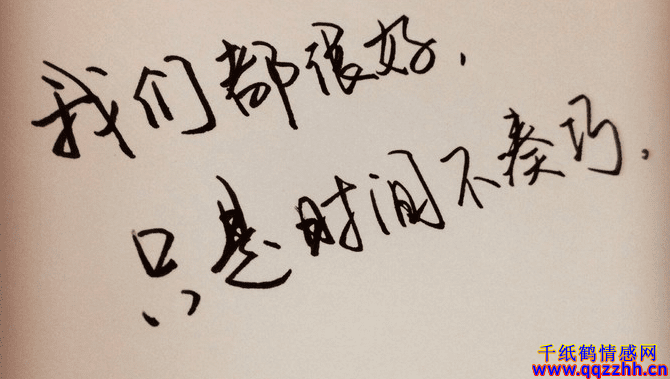 我们都很好.
只是时间不凑巧.
千纸鹤情感网
www.qqzzhh.cn